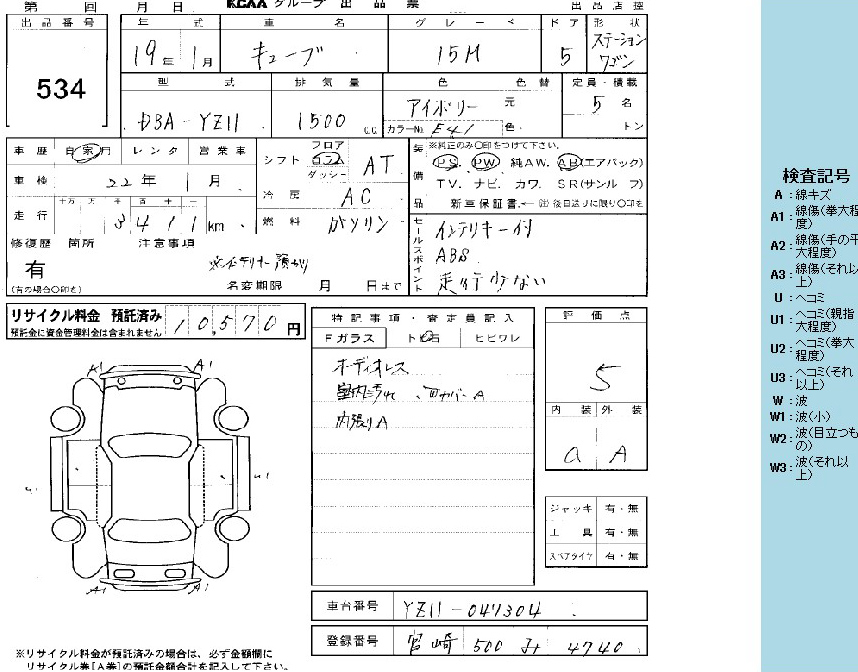 第 回 月 日 KCAA グループ 出 品 票 出 品 店 控
出 品 番 号
534
年 式 車 名 グ レ ー ド ド ア 形 状
19年 1月 キューブ 15M 5 ステーション
ワゴン
型 式 排 気 量 色 色 替 定員・積載
DBA-YZ11 1500 c.c. アイボリー 元 5名
カラーNo. E41 色 トン
車 歴 自家用 レンタ 営業車
車 検 22年 1月
走 行 十万 万 千 百 十 一
3411 km
シフト フロア
コラム
ダッシー
AT
冷 房 AC
燃 料 ガソリン
修復歴 箇所 注意事項
有
(有の場合○印を)
名変期限 月 日まで
装備品
※純正のみ○印をつけて下さい。
PS. PW. 純AW. AB(エアバック)
TV. ナビ. カワ. SR(サンルーフ)
新車保証書.←(注)後日送りに限り○印を
セールスポイント
インテリキー付
ABS
走行少ない
リサイクル料金 預託済み 10,570 円
預託金に資金管理料金は含まれません
特 記 事 項 ・ 査 定 員 記 入
Fガラス トビ石 ヒビワレ
オーディオレス
室内汚れ
内張りA
評 価 点
5
内 装 外 装
a A
A1 A1
U1 U1
A1 A1
ジャッキ 有・無
工 具 有・無
スペアタイヤ 有・無
車台番号 YZ11-047304
登録番号 宮崎 500 4740
※リサイクル料金が預託済みの場合は、必ず金額欄に
リサイクル券[A券]の預託金額合計を記入して下さい。
検査記号
A : 線キズ
A1 : 線傷(拳大程
度)
A2 : 線傷(手の平
大程度)
A3 : 線傷(それ以
上)
U : ヘコミ
U1 : ヘコミ(親指
大程度)
U2 : ヘコミ(拳大
程度)
U3 : ヘコミ(それ
以上)
W : 波
W1 : 波(小)
W2 : 波(目立つも
の)
W3 : 波(それ以
上)